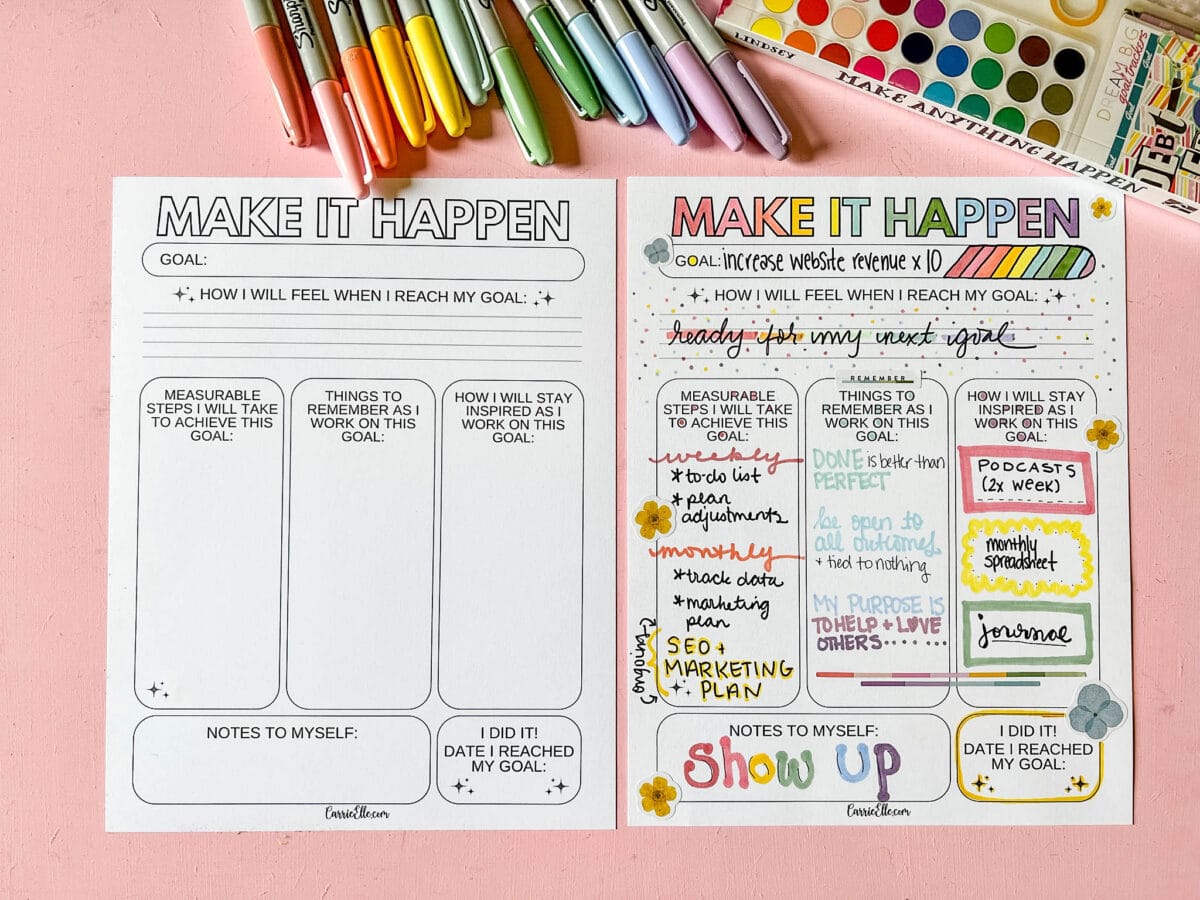 Sharpie
LINDSEY
MAKE ANYTHING HAPPEN
DREAM BIG
goal trackers
DEBT
MAKE IT HAPPEN
GOAL:
HOW I WILL FEEL WHEN I REACH MY GOAL:
MEASURABLE
STEPS I WILL TAKE
TO ACHIEVE THIS
GOAL:
THINGS TO
REMEMBER AS I
WORK ON THIS
GOAL:
HOW I WILL STAY
INSPIRED AS I
WORK ON THIS
GOAL:
NOTES TO MYSELF:
I DID IT!
DATE I REACHED
MY GOAL:
CarrieElle.com
MAKE IT HAPPEN
GOAL: increase website revenue x 10
HOW I WILL FEEL WHEN I REACH MY GOAL:
ready for my next goal
MEASURABLE
STEPS I WILL TAKE
TO ACHIEVE THIS
GOAL:
weekly
* to-do list
* plan
adjustments
monthly
* track data
* marketing
plan
ongoing
SEO +
MARKETING
PLAN
REMEMBER
THINGS TO
REMEMBER AS I
WORK ON THIS
GOAL:
DONE is better than
PERFECT
be open to
all outcomes
+ tied to nothing
MY PURPOSE IS
TO HELP + LOVE
OTHERS......
HOW I WILL STAY
INSPIRED AS I
WORK ON THIS
GOAL:
PODCASTS
(2x week)
monthly
spreadsheet
journal
NOTES TO MYSELF:
Show UP
I DID IT!
DATE I REACHED
MY GOAL:
CarrieElle.com